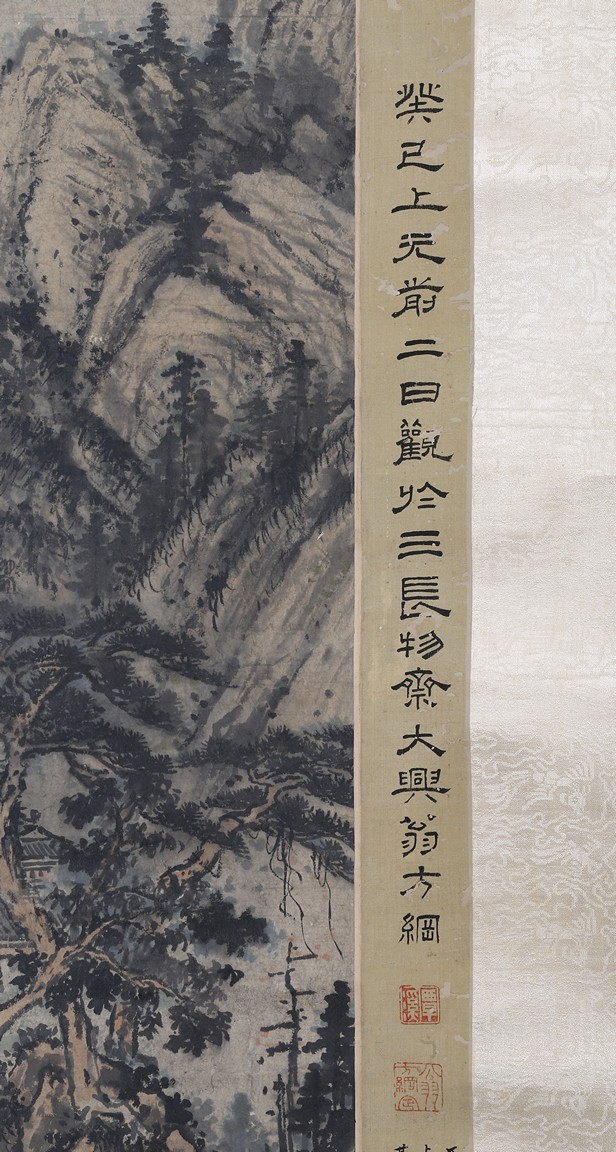 癸巳上元前二日觀於三長物齋大興翁方綱
覃溪